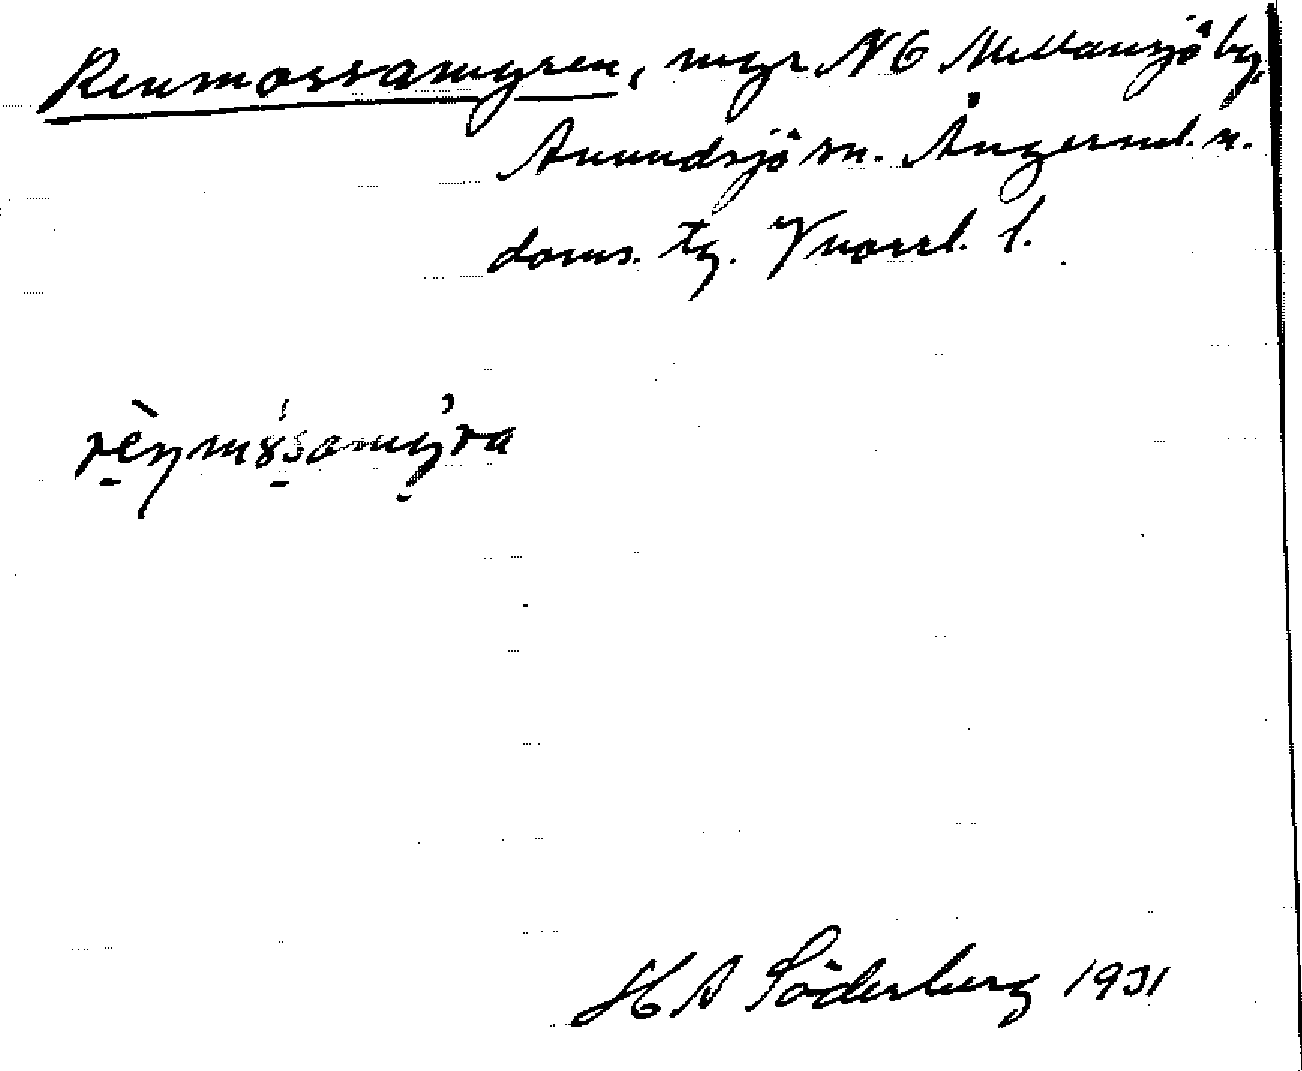 Renmossamyren, myr N G Mellansjö by,
Anundsjö sn. Ångerml. n.
doms. tg. Vnorrl. l.
H A Söderberg 1931